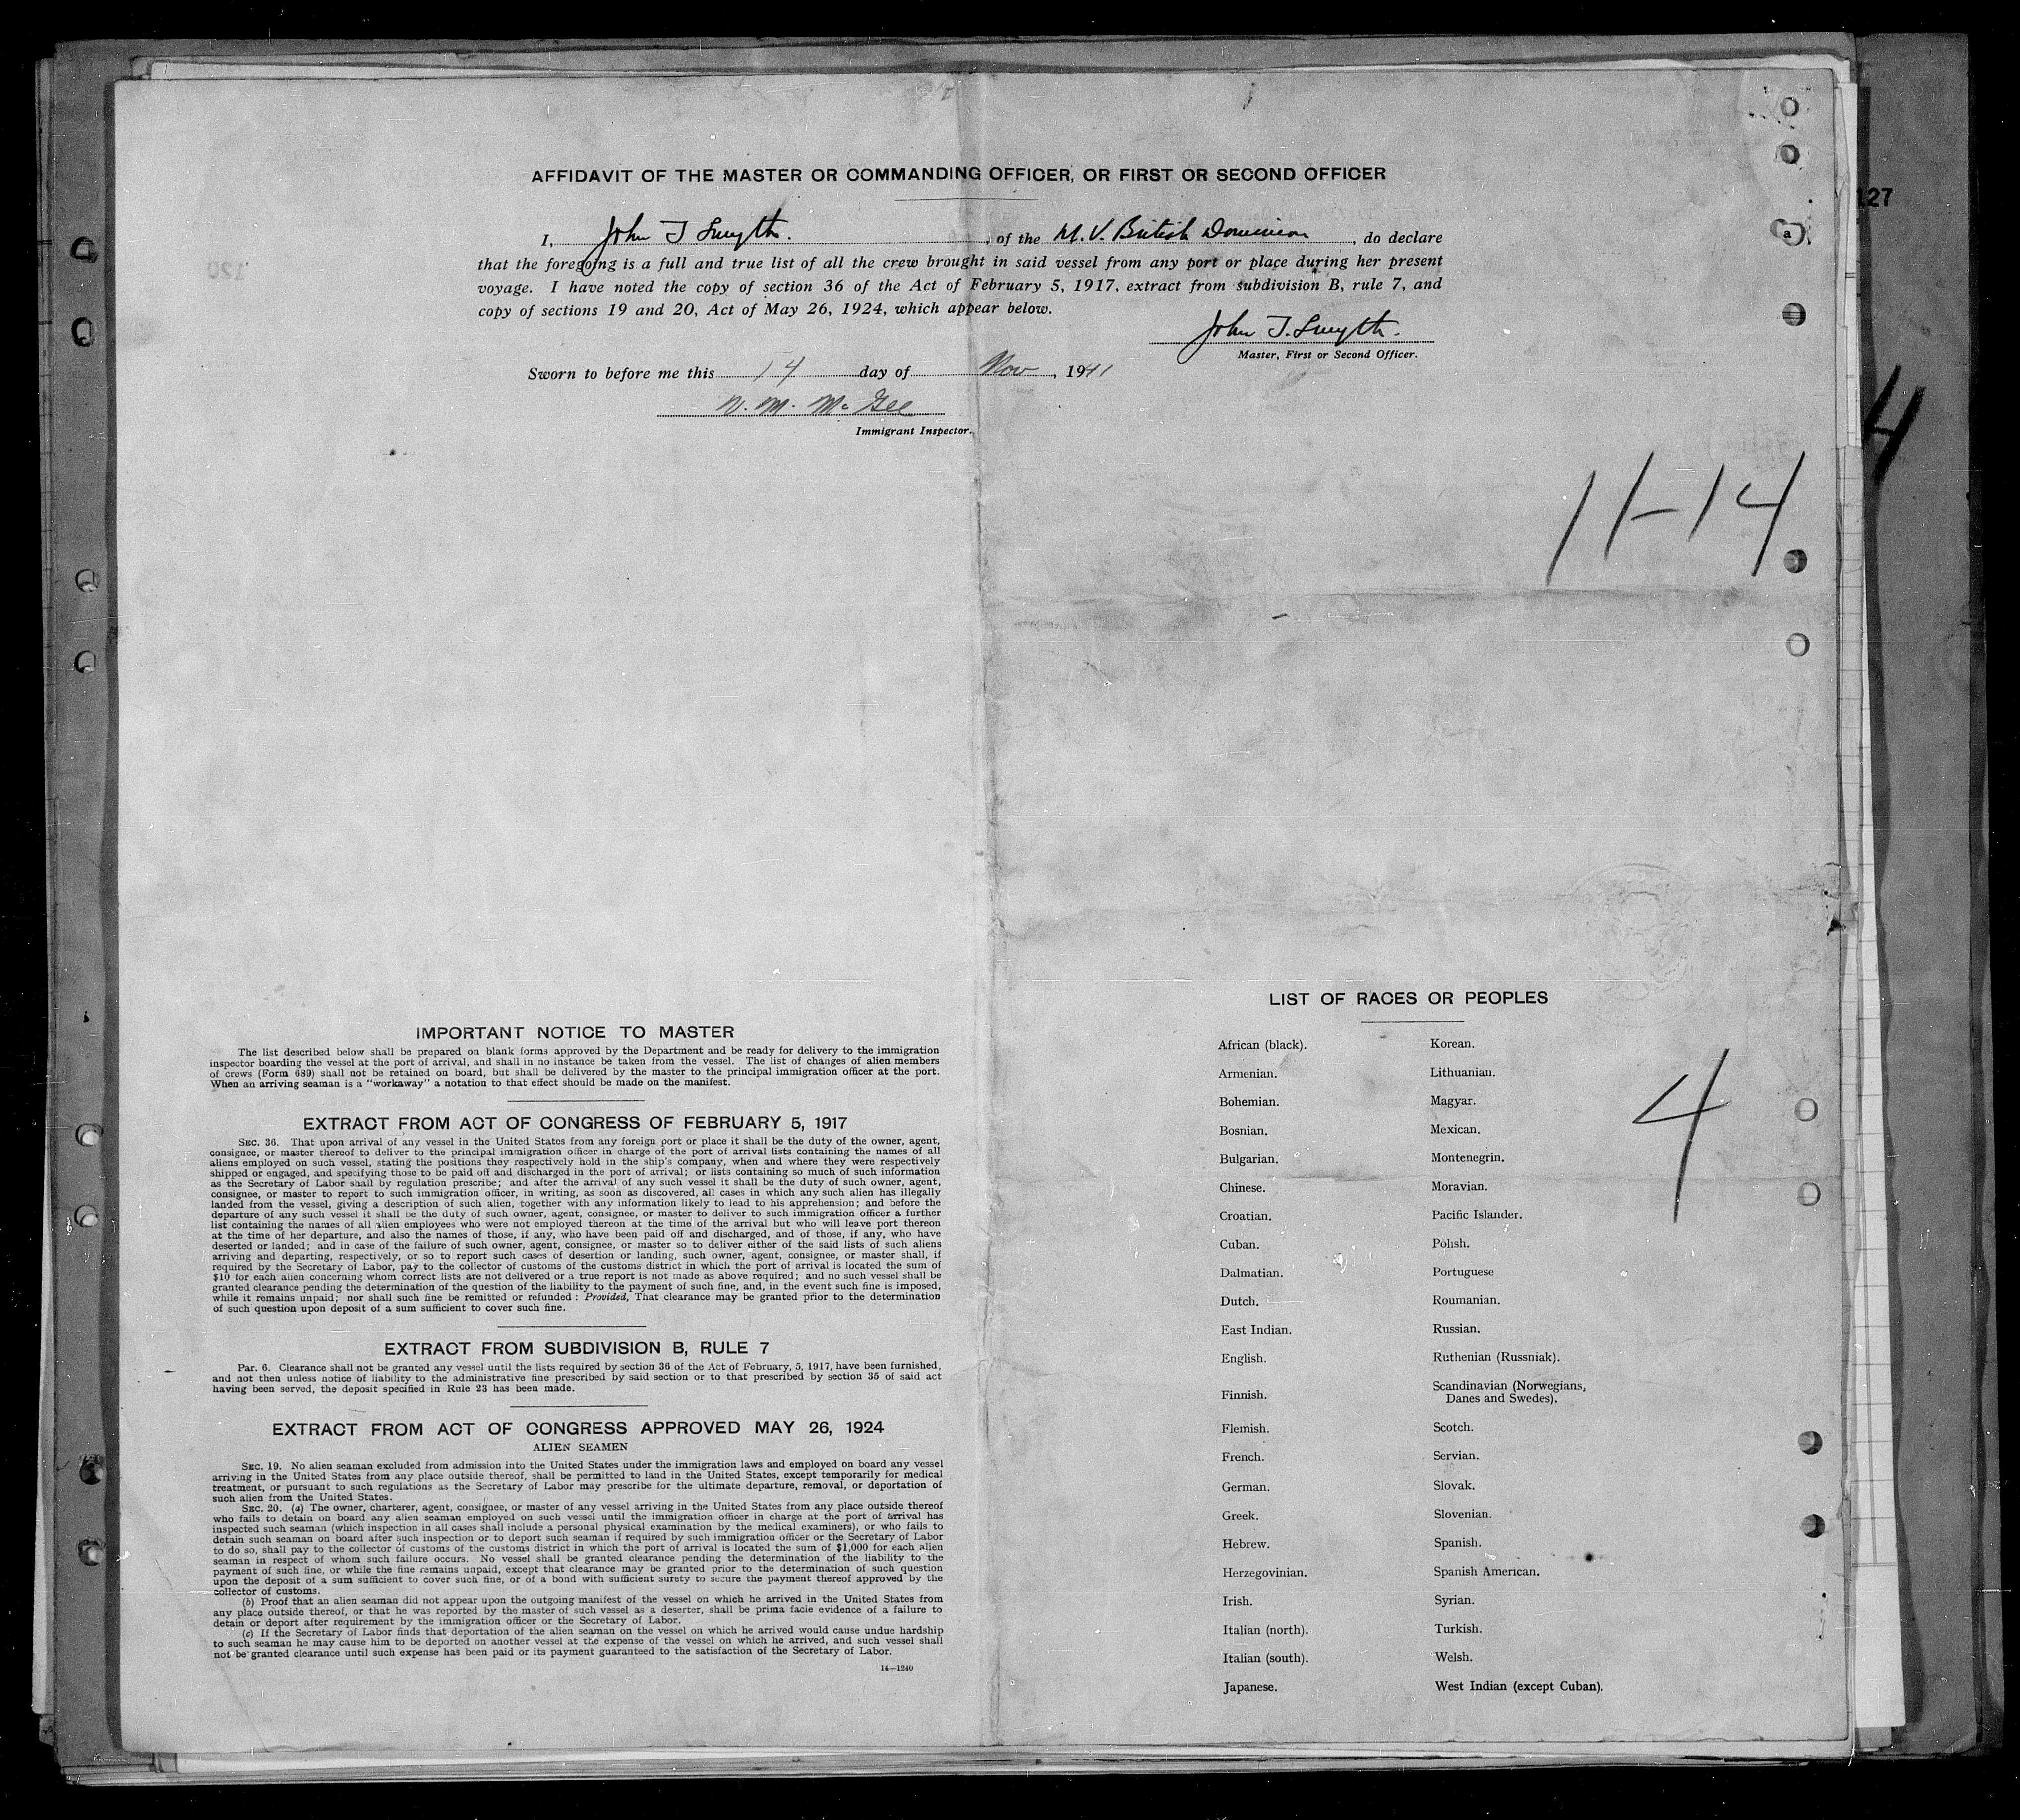 AFFIDAVIT OF THE MASTER OR COMMANDING OFFICER, OR FIRST OR SECOND OFFICER
I, John T Smyth. , of the M.V. British Dominion , do declare
that the foregoing is a full and true list of all the crew brought in said vessel from any port or place during her present
voyage. I have noted the copy of section 36 of the Act of February 5, 1917, extract from subdivision B, rule 7, and
copy of sections 19 and 20, Act of May 26, 1924, which appear below.
John T. Smyth.
Master, First or Second Officer.
Sworn to before me this 14 day of Nov , 1941
W. M. McGee
Immigrant Inspector.
127
a
120
4
11-14
IMPORTANT NOTICE TO MASTER
The list described below shall be prepared on blank forms approved by the Department and be ready for delivery to the immigration
inspector boarding the vessel at the port of arrival, and shall in no instance be taken from the vessel. The list of changes of alien members
of crews (Form 689) shall not be retained on board, but shall be delivered by the master to the principal immigration officer at the port.
When an arriving seaman is a "workaway" a notation to that effect should be made on the manifest.
EXTRACT FROM ACT OF CONGRESS OF FEBRUARY 5, 1917
SEC. 36. That upon arrival of any vessel in the United States from any foreign port or place it shall be the duty of the owner, agent,
consignee, or master thereof to deliver to the principal immigration officer in charge of the port of arrival lists containing the names of all
aliens employed on such vessel, stating the positions they respectively hold in the ship's company, when and where they were respectively
shipped or engaged, and specifying those to be paid off and discharged in the port of arrival; or lists containing so much of such information
as the Secretary of Labor shall by regulation prescribe; and after the arrival of any such vessel it shall be the duty of such owner, agent,
consignee, or master to report to such immigration officer, in writing, as soon as discovered, all cases in which any such alien has illegally
landed from the vessel, giving a description of such alien, together with any information likely to lead to his apprehension; and before the
departure of any such vessel it shall be the duty of such owner, agent, consignee, or master to deliver to such immigration officer a further
list containing the names of all alien employees who were not employed thereon at the time of the arrival but who will leave port thereon
at the time of her departure, and also the names of those, if any, who have been paid off and discharged, and of those, if any, who have
deserted or landed; and in case of the failure of such owner, agent, consignee, or master so to deliver either of the said lists of such aliens
arriving and departing, respectively, or so to report such cases of desertion or landing, such owner, agent, consignee, or master shall, if
required by the Secretary of Labor, pay to the collector of customs of the customs district in which the port of arrival is located the sum of
$10 for each alien concerning whom correct lists are not delivered or a true report is not made as above required; and no such vessel shall be
granted clearance pending the determination of the question of the liability to the payment of such fine, and, in the event such fine is imposed,
while it remains unpaid; nor shall such fine be remitted or refunded: Provided, That clearance may be granted prior to the determination
of such question upon deposit of a sum sufficient to cover such fine.
EXTRACT FROM SUBDIVISION B, RULE 7
Par. 6. Clearance shall not be granted any vessel until the lists required by section 36 of the Act of February, 5, 1917, have been furnished,
and not then unless notice of liability to the administrative fine prescribed by said section or to that prescribed by section 35 of said act
having been served, the deposit specified in Rule 23 has been made.
EXTRACT FROM ACT OF CONGRESS APPROVED MAY 26, 1924
ALIEN SEAMEN
SEC. 19. No alien seaman excluded from admission into the United States under the immigration laws and employed on board any vessel
arriving in the United States from any place outside thereof, shall be permitted to land in the United States, except temporarily for medical
treatment, or pursuant to such regulations as the Secretary of Labor may prescribe for the ultimate departure, removal, or deportation of
such alien from the United States.
SEC. 20. (a) The owner, charterer, agent, consignee, or master of any vessel arriving in the United States from any place outside thereof
who fails to detain on board any alien seaman employed on such vessel until the immigration officer in charge at the port of arrival has
inspected such seaman (which inspection in all cases shall include a personal physical examination by the medical examiners), or who fails to
detain such seaman on board after such inspection or to deport such seaman if required by such immigration officer or the Secretary of Labor
to do so, shall pay to the collector of customs of the customs district in which the port of arrival is located the sum of $1,000 for each alien
seaman in respect of whom such failure occurs. No vessel shall be granted clearance pending the determination of the liability to the
payment of such fine, or while the fine remains unpaid, except that clearance may be granted prior to the determination of such question
upon the deposit of a sum sufficient to cover such fine, or of a bond with sufficient surety to secure the payment thereof approved by the
collector of customs.
(b) Proof that an alien seaman did not appear upon the outgoing manifest of the vessel on which he arrived in the United States from
any place outside thereof, or that he was reported by the master of such vessel as a deserter, shall be prima facie evidence of a failure to
detain or deport after requirement by the immigration officer or the Secretary of Labor.
(c) If the Secretary of Labor finds that deportation of the alien seaman on the vessel on which he arrived would cause undue hardship
to such seaman he may cause him to be deported on another vessel at the expense of the vessel on which he arrived, and such vessel shall
not be granted clearance until such expense has been paid or its payment guaranteed to the satisfaction of the Secretary of Labor.
14—1240
LIST OF RACES OR PEOPLES
African (black).
Armenian.
Bohemian.
Bosnian.
Bulgarian.
Chinese.
Croatian.
Cuban.
Dalmatian.
Dutch.
East Indian.
English.
Finnish.
Flemish.
French.
German.
Greek.
Hebrew.
Herzegovinian.
Irish.
Italian (north).
Italian (south).
Japanese.
Korean.
Lithuanian.
Magyar.
Mexican.
Montenegrin.
Moravian.
Pacific Islander.
Polish.
Portuguese
Roumanian.
Russian.
Ruthenian (Russniak).
Scandinavian (Norwegians,
Danes and Swedes).
Scotch.
Servian.
Slovak.
Slovenian.
Spanish.
Spanish American.
Syrian.
Turkish.
Welsh.
West Indian (except Cuban).
4